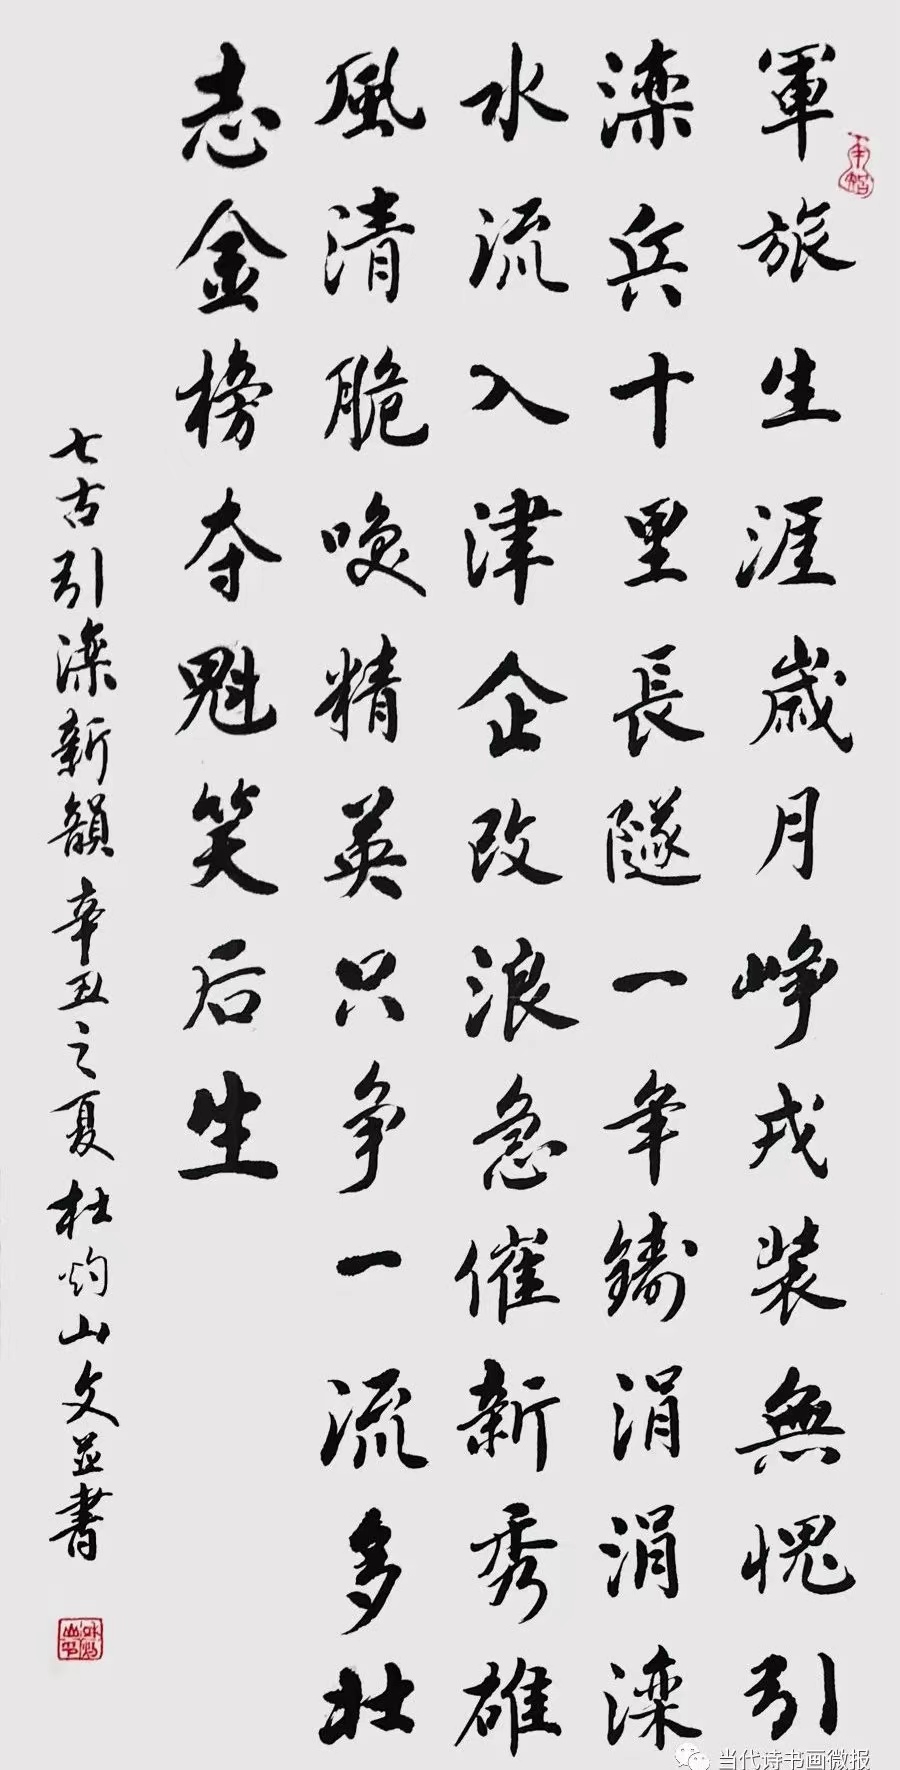 軍旅生涯歲月崢戎装無愧引
滦兵十里長隧一年鑄涓涓滦
水流入津企改浪急催新秀雄
風清脆喚精英只争一流多壮
志金榜夺魁笑后生
七古引滦新韻辛丑之夏杜灼山文並書
当代诗书画微报